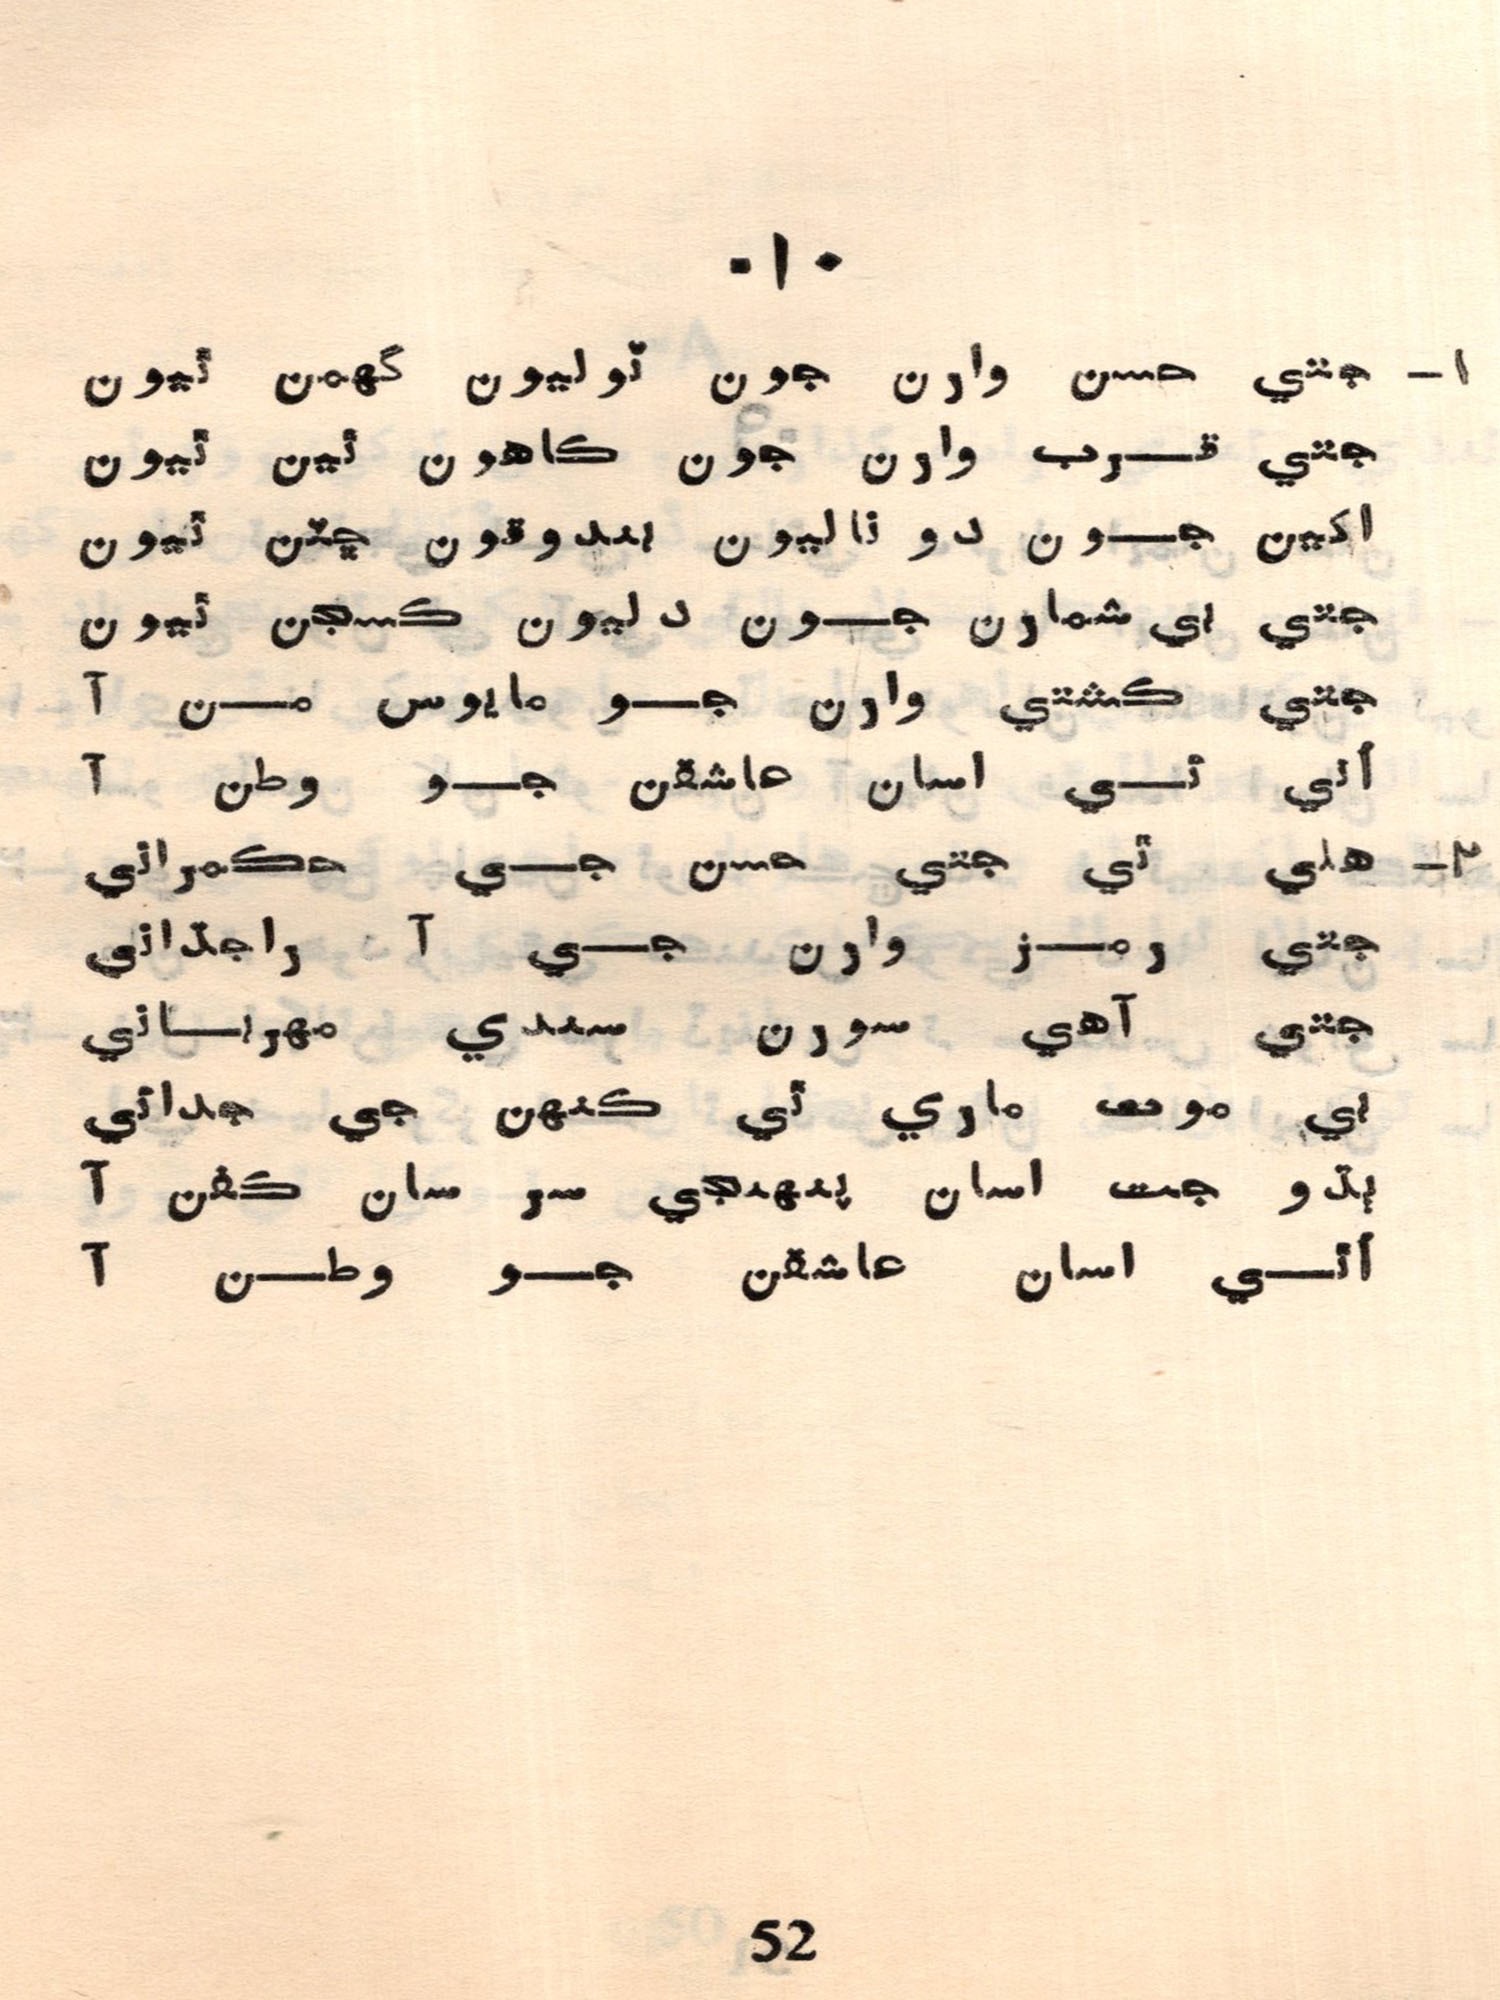 -۱۰
۱- جتي حسن وارن جون ٽوليون گھمن ٿيون
جتي قرب وارن جون ڪاهون ٿين ٿيون
اکين جون دو ناليون بندوقون ڇٽن ٿيون
جتي بي شمارن جون دليون ڪسجن ٿيون
جتي ڪشتي وارن جو مايوس من آ
اُتي ئي اسان عاشقن جو وطن آ
۲- هلي ٿي جتي حسن جي حڪمراني
جتي رمز وارن جي آ راجڌاني
جتي آهي سورن سندي مهرباني
بي موت ماري ٿي ڪنهن جي جدائي
ٻڌو جت اسان پنهنجي سر سان ڪفن آ
اُتي اسان عاشقن جو وطن آ
52